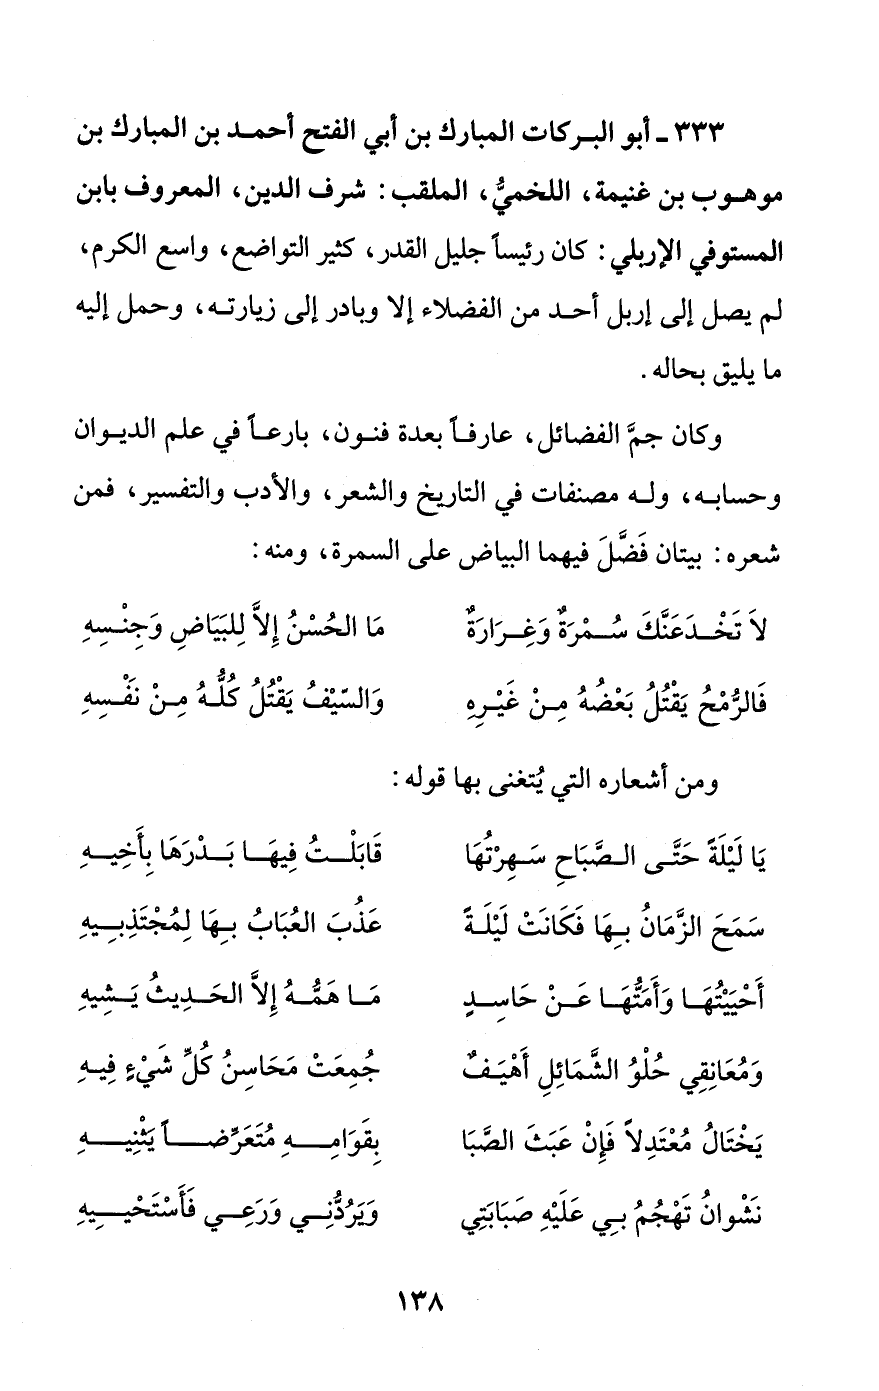 ٣٣٣ - أبو البركات المبارك بن أبي الفتح أحمد بن المبارك بن
موهوب بن غنيمة، اللخميُّ، الملقب: شرف الدين، المعروف بابن
المستوفي الإربلي: كان رئيساً جليل القدر، كثير التواضع، واسع الكرم،
لم يصل إلى إربل أحد من الفضلاء إلا وبادر إلى زيارته، وحمل إليه
ما يليق بحاله.
وكان جمَّ الفضائل، عارفاً بعدة فنون، بارعاً في علم الديوان
وحسابه، وله مصنفات في التاريخ والشعر، والأدب والتفسير، فمن
شعره: بيتان فَضَّلَ فيهما البياض على السمرة، ومنه:
لاَ تَخْدَعَنَّكَ سُمْرَةٌ وَغِرَارَةٌ مَا الحُسْنُ إِلاَّ لِلبَيَاضِ وَجِنْسِهِ
فَالرُّمْحُ يَقْتُلُ بَعْضُهُ مِنْ غَيْرِهِ وَالسَّيْفُ يَقْتُلُ كُلُّهُ مِنْ نَفْسِهِ
ومن أشعاره التي يُتغنى بها قوله:
يَا لَيْلَةً حَتَّى الصَّبَاحِ سَهِرْتُهَا قَابَلْتُ فِيهَا بَدْرَهَا بِأَخِيهِ
سَمَحَ الزَّمَانُ بِهَا فَكَانَتْ لَيْلَةً عَذُبَ العُبَابُ بِهَا لِمُجْتَذِبِيهِ
أَحْيَيْتُهَا وَأَمَتُّهَا عَنْ حَاسِدٍ مَا هَمُّهُ إِلاَّ الحَدِيثُ يَشِيهِ
وَمُعَانِقِي حُلْوُ الشَّمَائِلِ أَهْيَفٌ جُمِعَتْ مَحَاسِنُ كُلِّ شَيْءٍ فِيهِ
يَخْتَالُ مُعْتَدِلاً فَإِنْ عَبَثَ الصَّبَا بِقَوَامِهِ مُتَعَرِّضاً يَثْنِيهِ
نَشْوانُ تَهْجُمُ بِي عَلَيْهِ صَبَابَتِي وَيَرُدُّنِي وَرَعِي فَأَسْتَحْيِيهِ
١٣٨